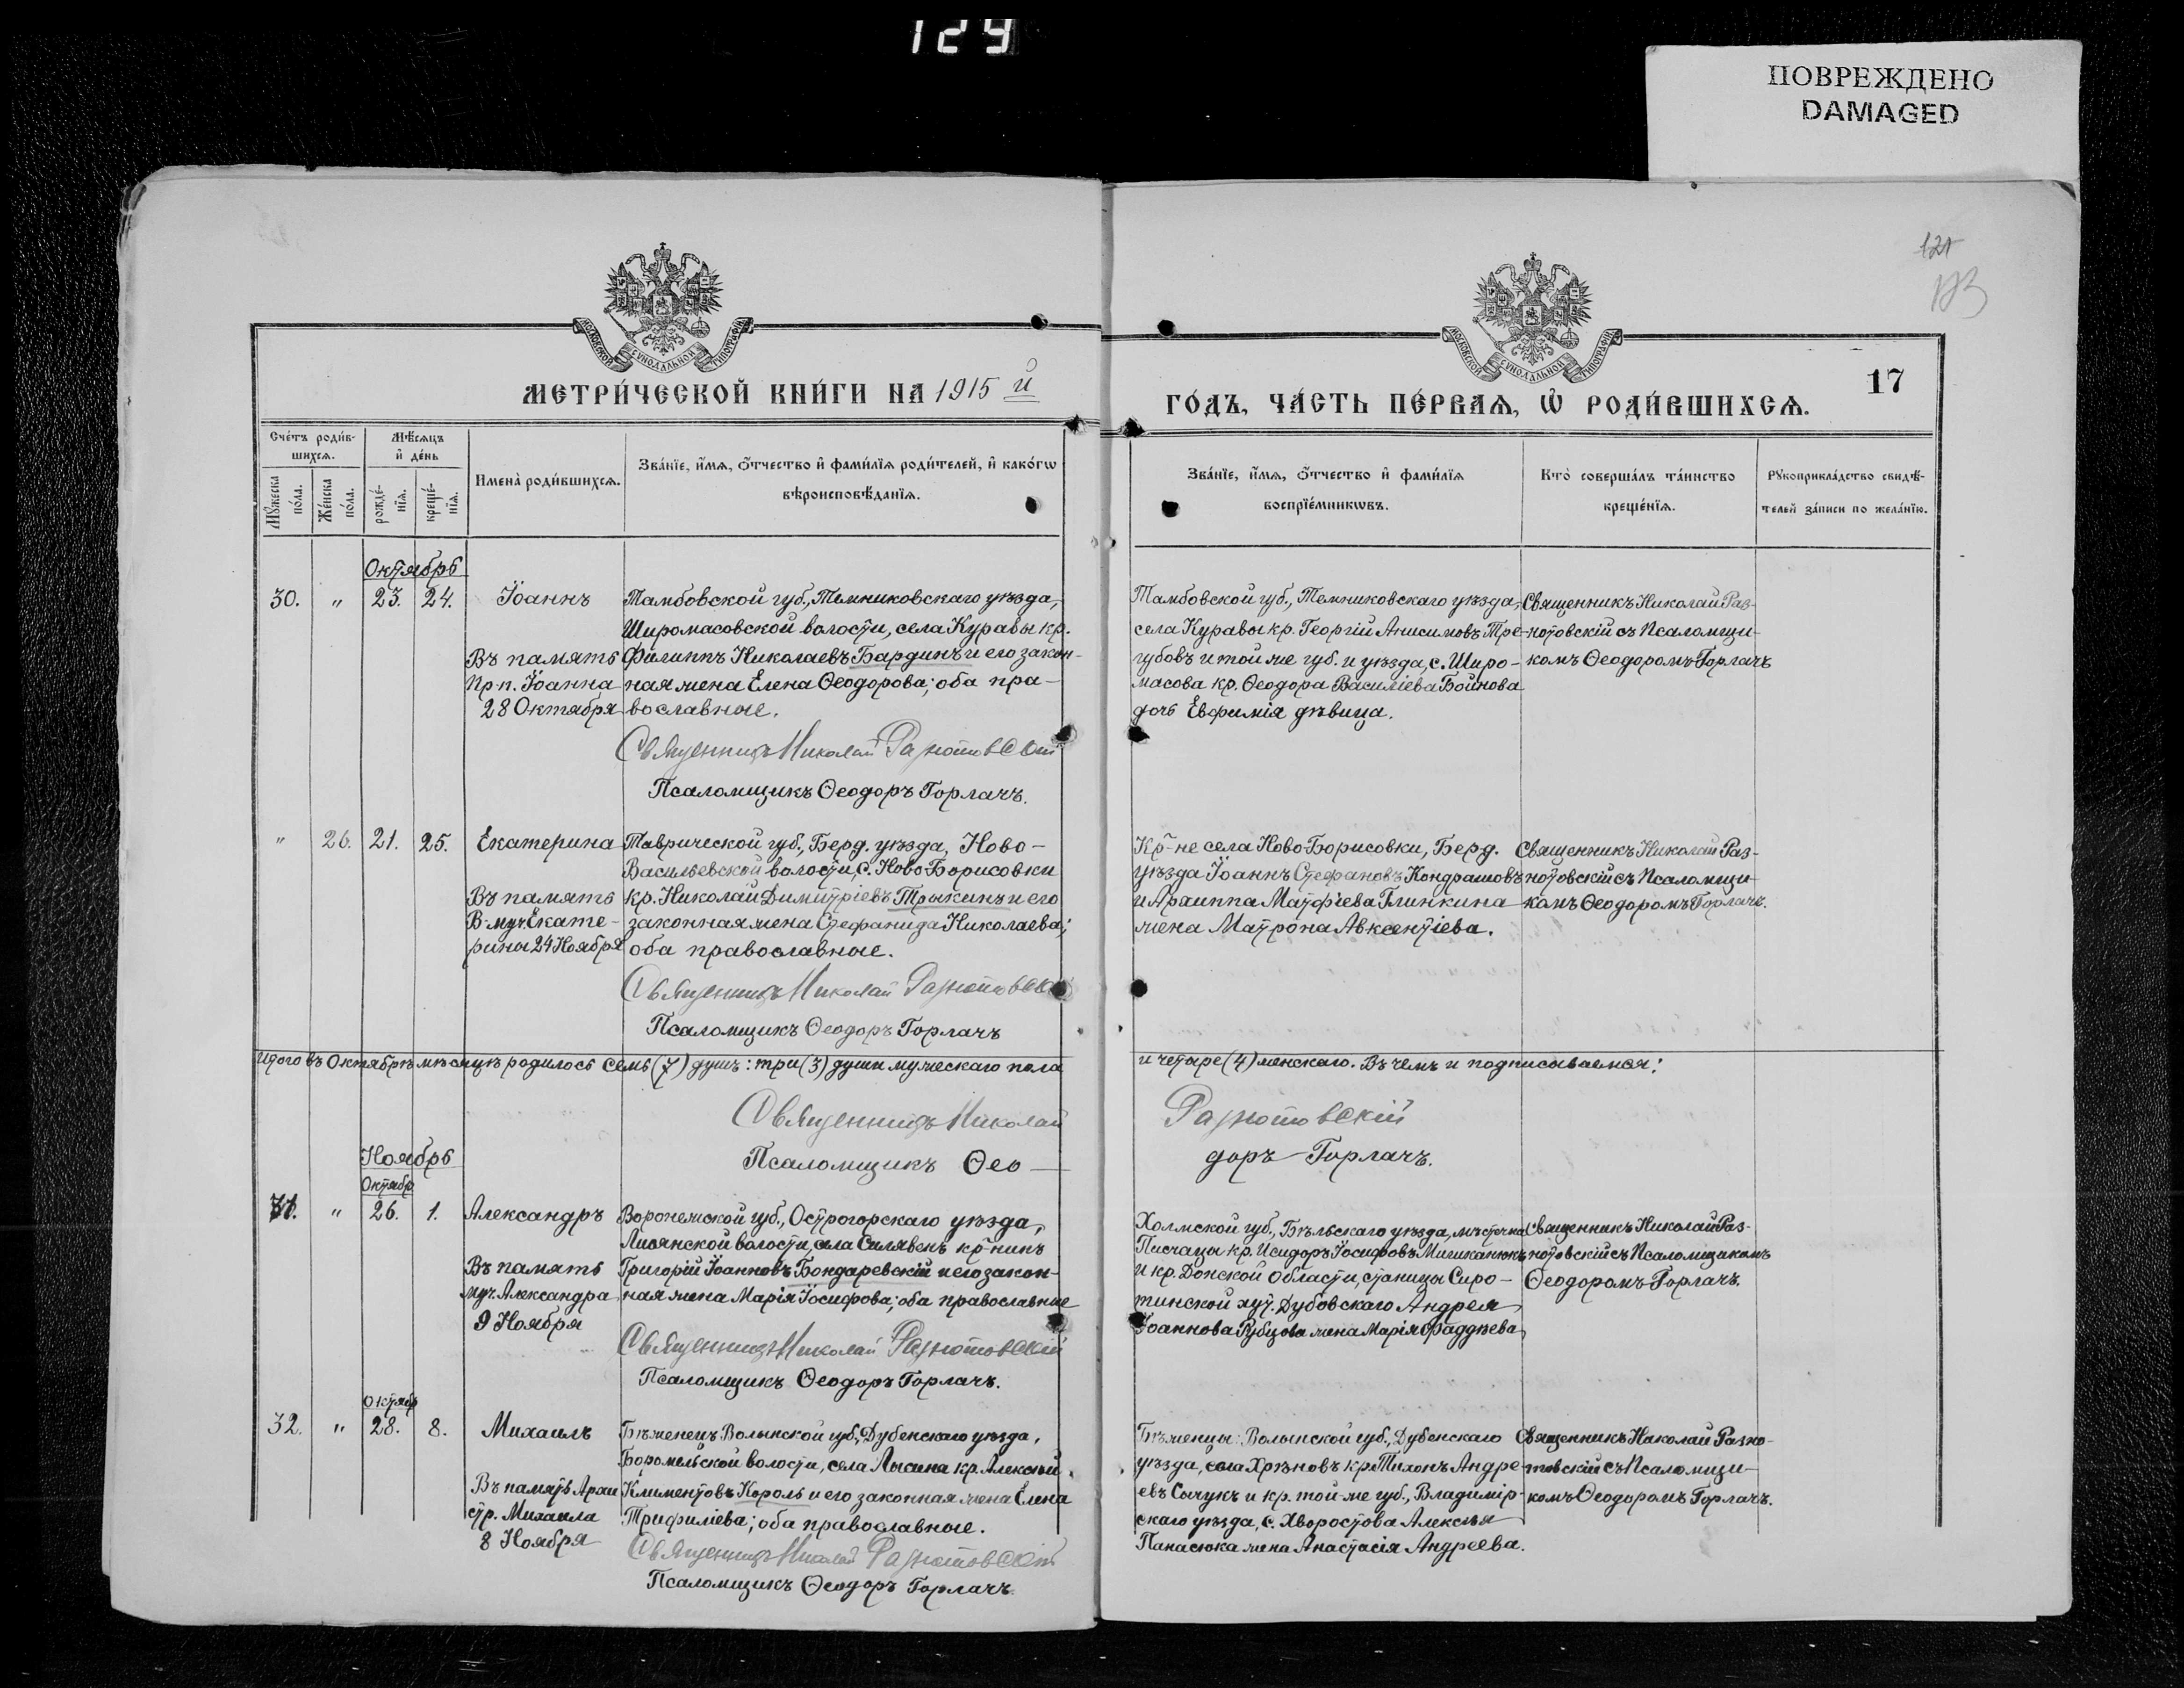 129
ПОВРЕЖДЕНО
DAMAGED
121
МОСКОВСКОЙ СѴНОДАЛЬНОЙ ТИПОГРАФІИ
МОСКОВСКОЙ СѴНОДАЛЬНОЙ ТИПОГРАФІИ
МЕТРИ́ЧЕСКОЙ КНИ́ГИ НА 1915 й
ГО́ДЪ, ЧА́СТЬ ПЕ́РВАѦ, Ѡ҆ РОДИ́ВШИХСѦ.
17
Сче́тъ роди́в-
шихсѧ.
Мѣ́сѧцъ
и҆ де́нь
Мꙋ́жеска
по́ла.
Же́нска
по́ла.
рожде́-
нїѧ.
креще́-
нїѧ.
Имена̀ роди́вшихсѧ.
Зва́нїе, и҆́мѧ, ѻ҆́тчество и҆ фами́лїѧ роди́телей, и҆ како́гѡ
вѣроисповѣ́данїѧ.
Зва́нїе, и҆́мѧ, ѻ҆́тчество и҆ фами́лїѧ
воспрїе́мникѡвъ.
Кто̀ соверша́лъ та́инство
креще́нїѧ.
Рꙋкоприкла́дство свидѣ́-
телей за́писи по жела́нїю.
Октябрь
30. " 23. 24. Іоаннъ
Въ память
Прп. Іоанна
28 Октября
Тамбовской губ., Темниковскаго уѣзда,
Широмасовской волости, села Куравы кр.
Филиппъ Николаевъ Бардинъ и его закон-
ная жена Елена Ѳеодорова; оба пра-
вославные.
Священникъ Николай Разнотовскій
Псаломщикъ Ѳеодоръ Горлачъ.
Тамбовской губ., Темниковскаго уѣзда,
села Куравы кр. Георгій Анисимовъ Тре-
губовъ и той же губ. и уѣзда, с. Широ-
масова кр. Ѳеодора Василіева Войнова
дочь Евфимія дѣвица.
Священникъ Николай Раз-
нотовскій съ Псаломщи-
комъ Ѳеодоромъ Горлачъ
" 26. 21. 25. Екатерина
Въ память
В-муч. Екате-
рины 24 Ноября
Таврической губ., Берд. уѣзда, Ново-
Васильевской волости, с. Ново-Борисовки
кр. Николай Димитріевъ Трыкинъ и его
законная жена Стефанида Николаева;
оба православные.
Священникъ Николай Разнотовскій
Псаломщикъ Ѳеодоръ Горлачъ
Кр-не села Ново-Борисовки, Берд.
уѣзда Іоаннъ Стефановъ Кондрашовъ
и Архиппа Матфіева Глинкина
жена Матрона Авксентіева.
Священникъ Николай Раз-
нотовскій съ Псаломщи-
комъ Ѳеодоромъ Горлачъ.
Итого въ Октябрѣ мѣсяцѣ родилось семь (7) душъ: три (3) души мужескаго пола
и четыре (4) женскаго. Въ чемъ и подписываемся:
Священникъ Николай
Разнотовскій
Псаломщикъ Ѳео-
доръ Горлачъ.
Ноябрь
Октябр
31. " 26. 1. Александръ
Въ память
муч. Александра
9 Ноября
Воронежской губ., Острогорскаго уѣзда,
Лисянской волости, села Силявенъ кр-нинъ
Григорій Іоанновъ Бондаревскій и его закон-
ная жена Марія Іосифова; оба православные
Священникъ Николай Разнотовскій
Псаломщикъ Ѳеодоръ Горлачъ.
Холмской губ., Бѣльскаго уѣзда, мѣстечка
Писчацы кр. Исидоръ Іосифовъ Мишканюкъ
и кр. Донской Области, станицы Сиро-
тинской хут. Дубовскаго Андрея
Іоаннова Рубцова жена Марія Фаддѣева
Священникъ Николай Раз-
нотовскій съ Псаломщикомъ
Ѳеодоромъ Горлачъ.
Октябр
32. " 28. 8. Михаилъ
Въ память Архи
стр. Михаила
8 Ноября
Бѣженецъ Волынской губ., Дубенскаго уѣзда,
Боромельской волости, села Лысина кр. Алексѣй
Климентовъ Король и его законная жена Елена
Трифиліева; оба православные.
Священникъ Николай Разнотовскій
Псаломщикъ Ѳеодоръ Горлачъ
Бѣженцы: Волынской губ., Дубенскаго
уѣзда, села Хрѣновъ кр. Тихонъ Андре-
евъ Сычукъ и кр. той-же губ., Владимір-
скаго уѣзда, с. Хворостова Алексѣя
Панасюка жена Анастасія Андреева.
Священникъ Николай Разно-
товскій съ Псаломщи-
комъ Ѳеодоромъ Горлачъ.